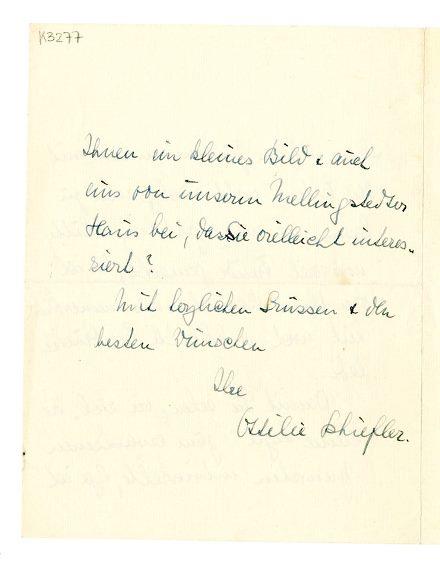 K3277
Ihnen ein kleines Bild & auch
eins von unserm Mellingstedter
Haus bei, das Sie vielleicht interes-
siert?
Mit herzlichen Grüssen & den
besten Wünschen
Ihre
Ottilie Schiefler.